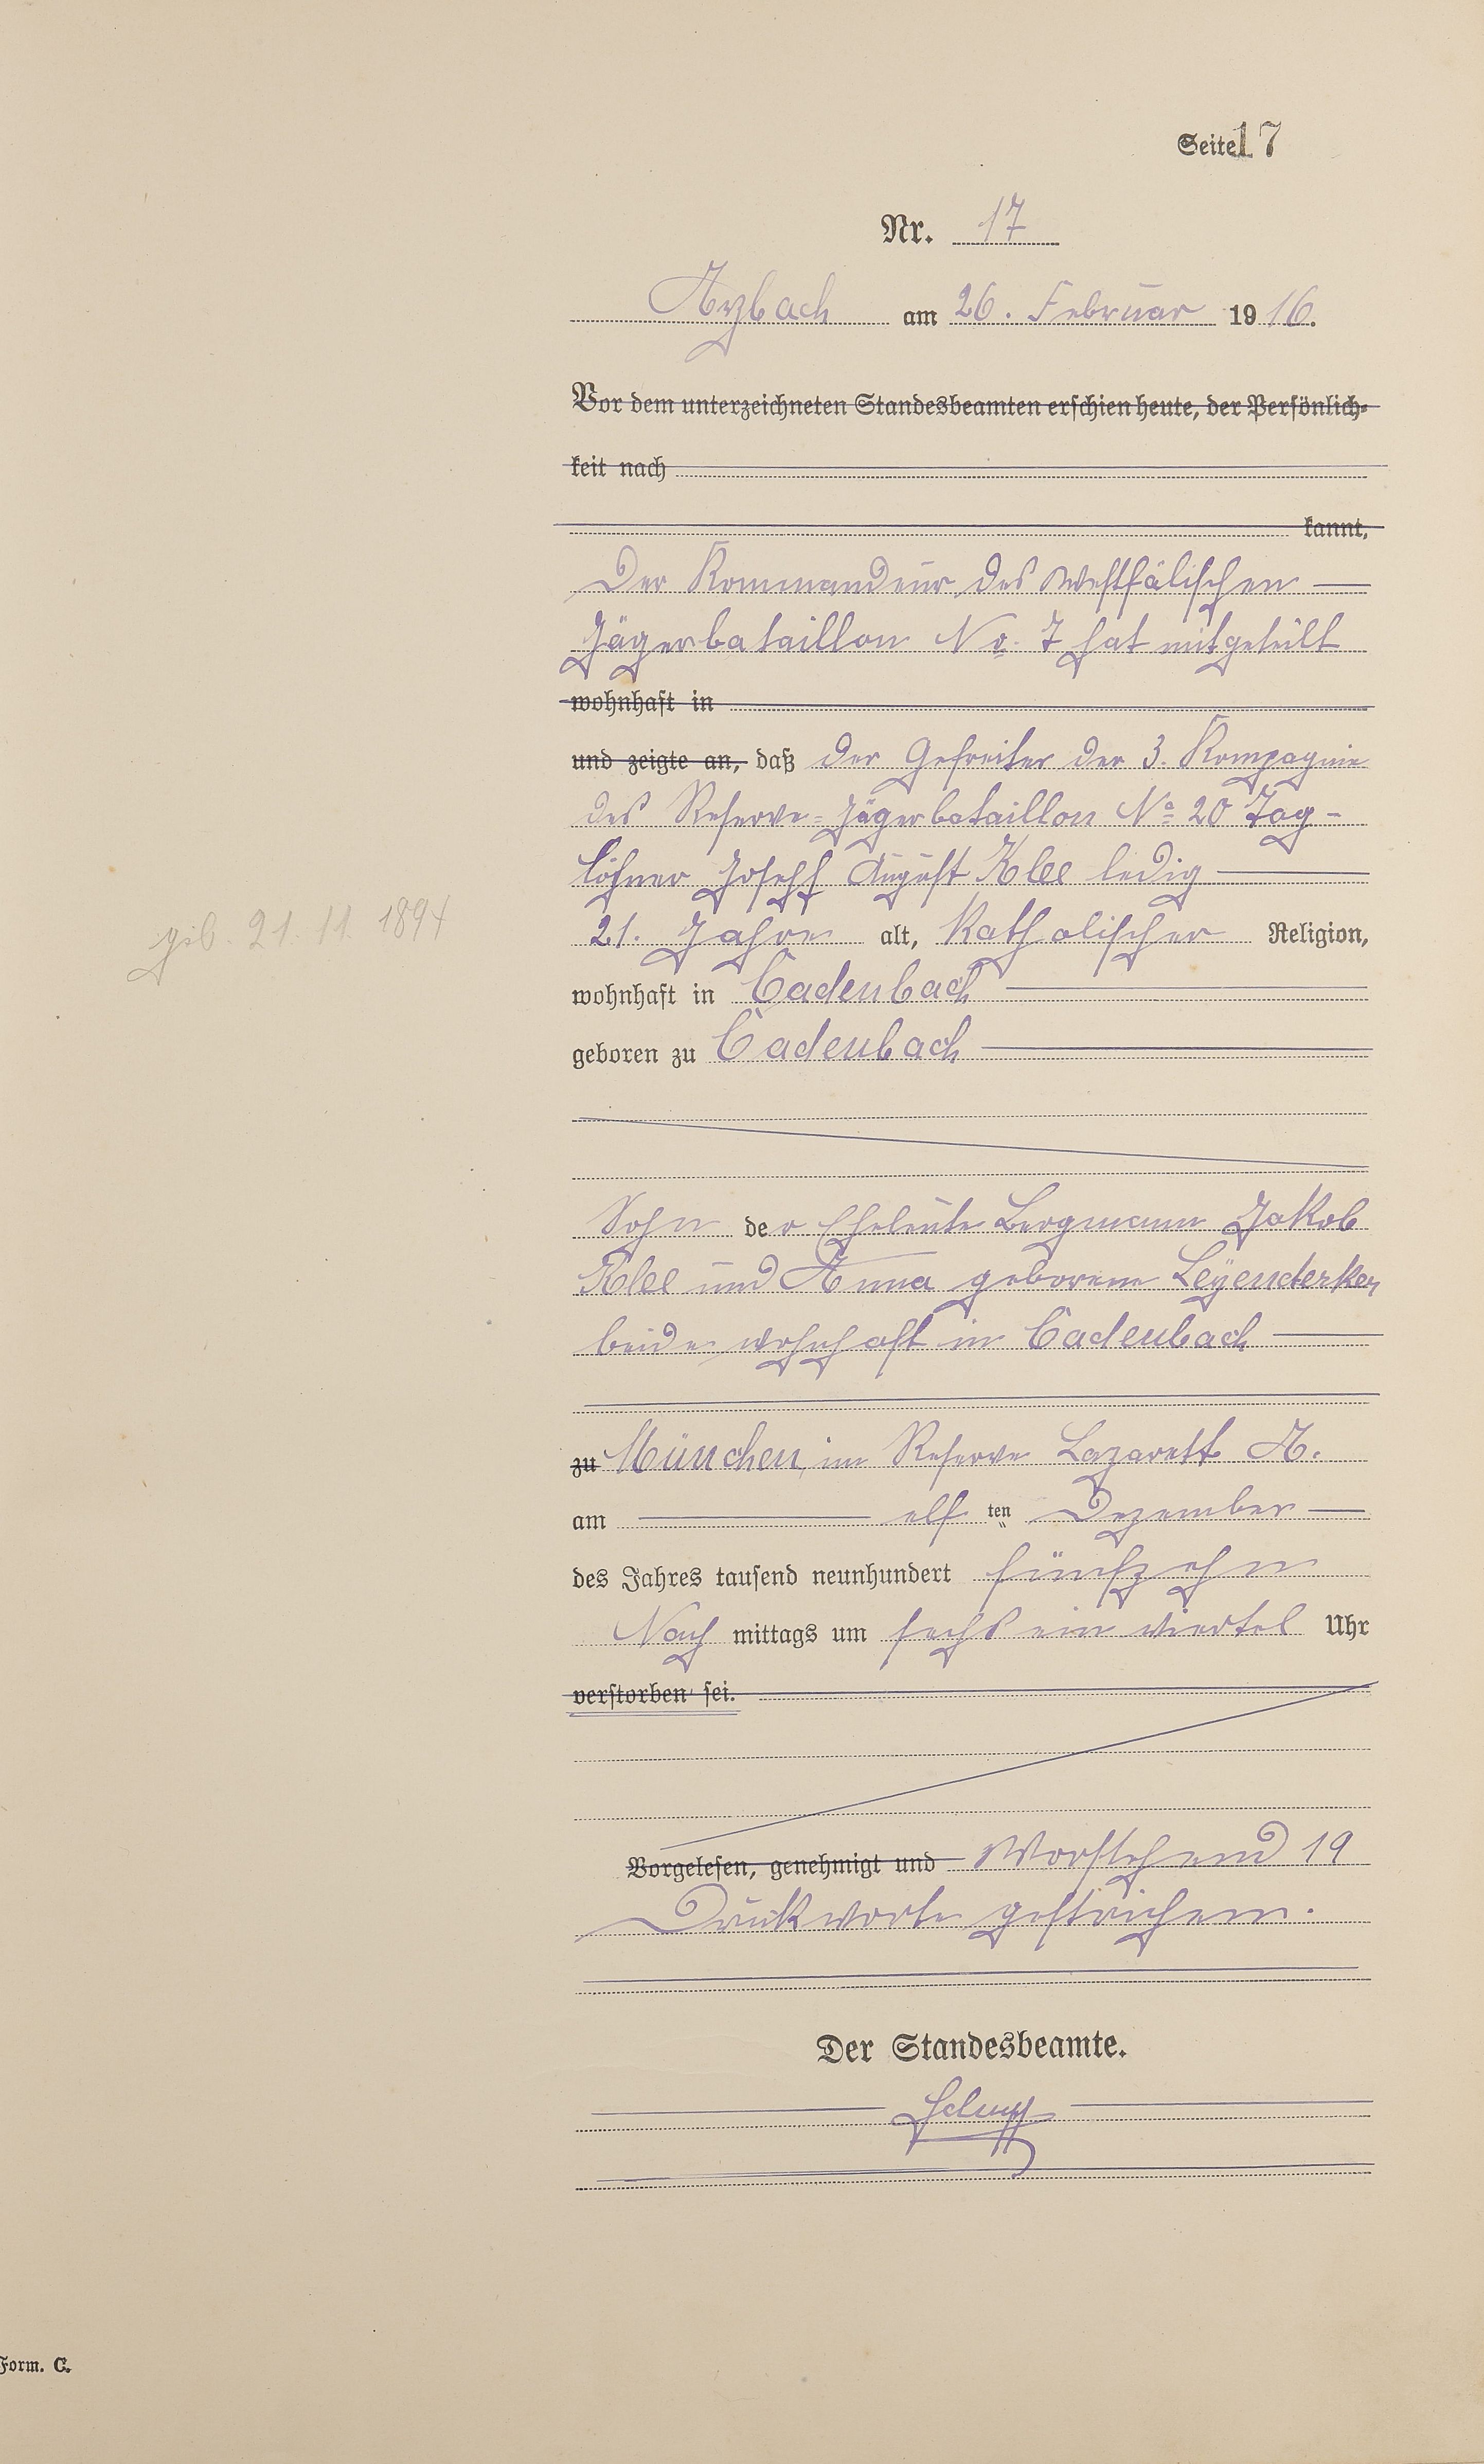 Seite 17
Nr. 17
Arzbach am 26. Februar 1916.
Vor dem unterzeichneten Standesbeamten erschien heute, der Persönlich-
keit nach
kannt,
Der Kommandeur des Westfälischen
Jägerbataillon No. 7 hat mitgeteilt
wohnhaft in
und zeigte an, daß der Gefreiter der 3. Kompagnie
des Reserve=Jägerbataillon No 20 Tag-
löhner Joseph August Klee ledig
geb. 21. 11. 1894
21. Jahre alt, Katholischer Religion,
wohnhaft in Cadenbach
geboren zu Cadenbach
Sohn der Eheleute Bergmann Jakob
Klee und Anna geborene Leyendecker
beide wohnhaft in Cadenbach
zu München, im Reserve Lazarett A.
am elften Dezember
des Jahres tausend neunhundert fünfzehn
Nachmittags um sechs ein viertel Uhr
verstorben sei.
Vorgelesen, genehmigt und Vorstehend 19
Druckworte gestrichen.
Der Standesbeamte.
Form. C.